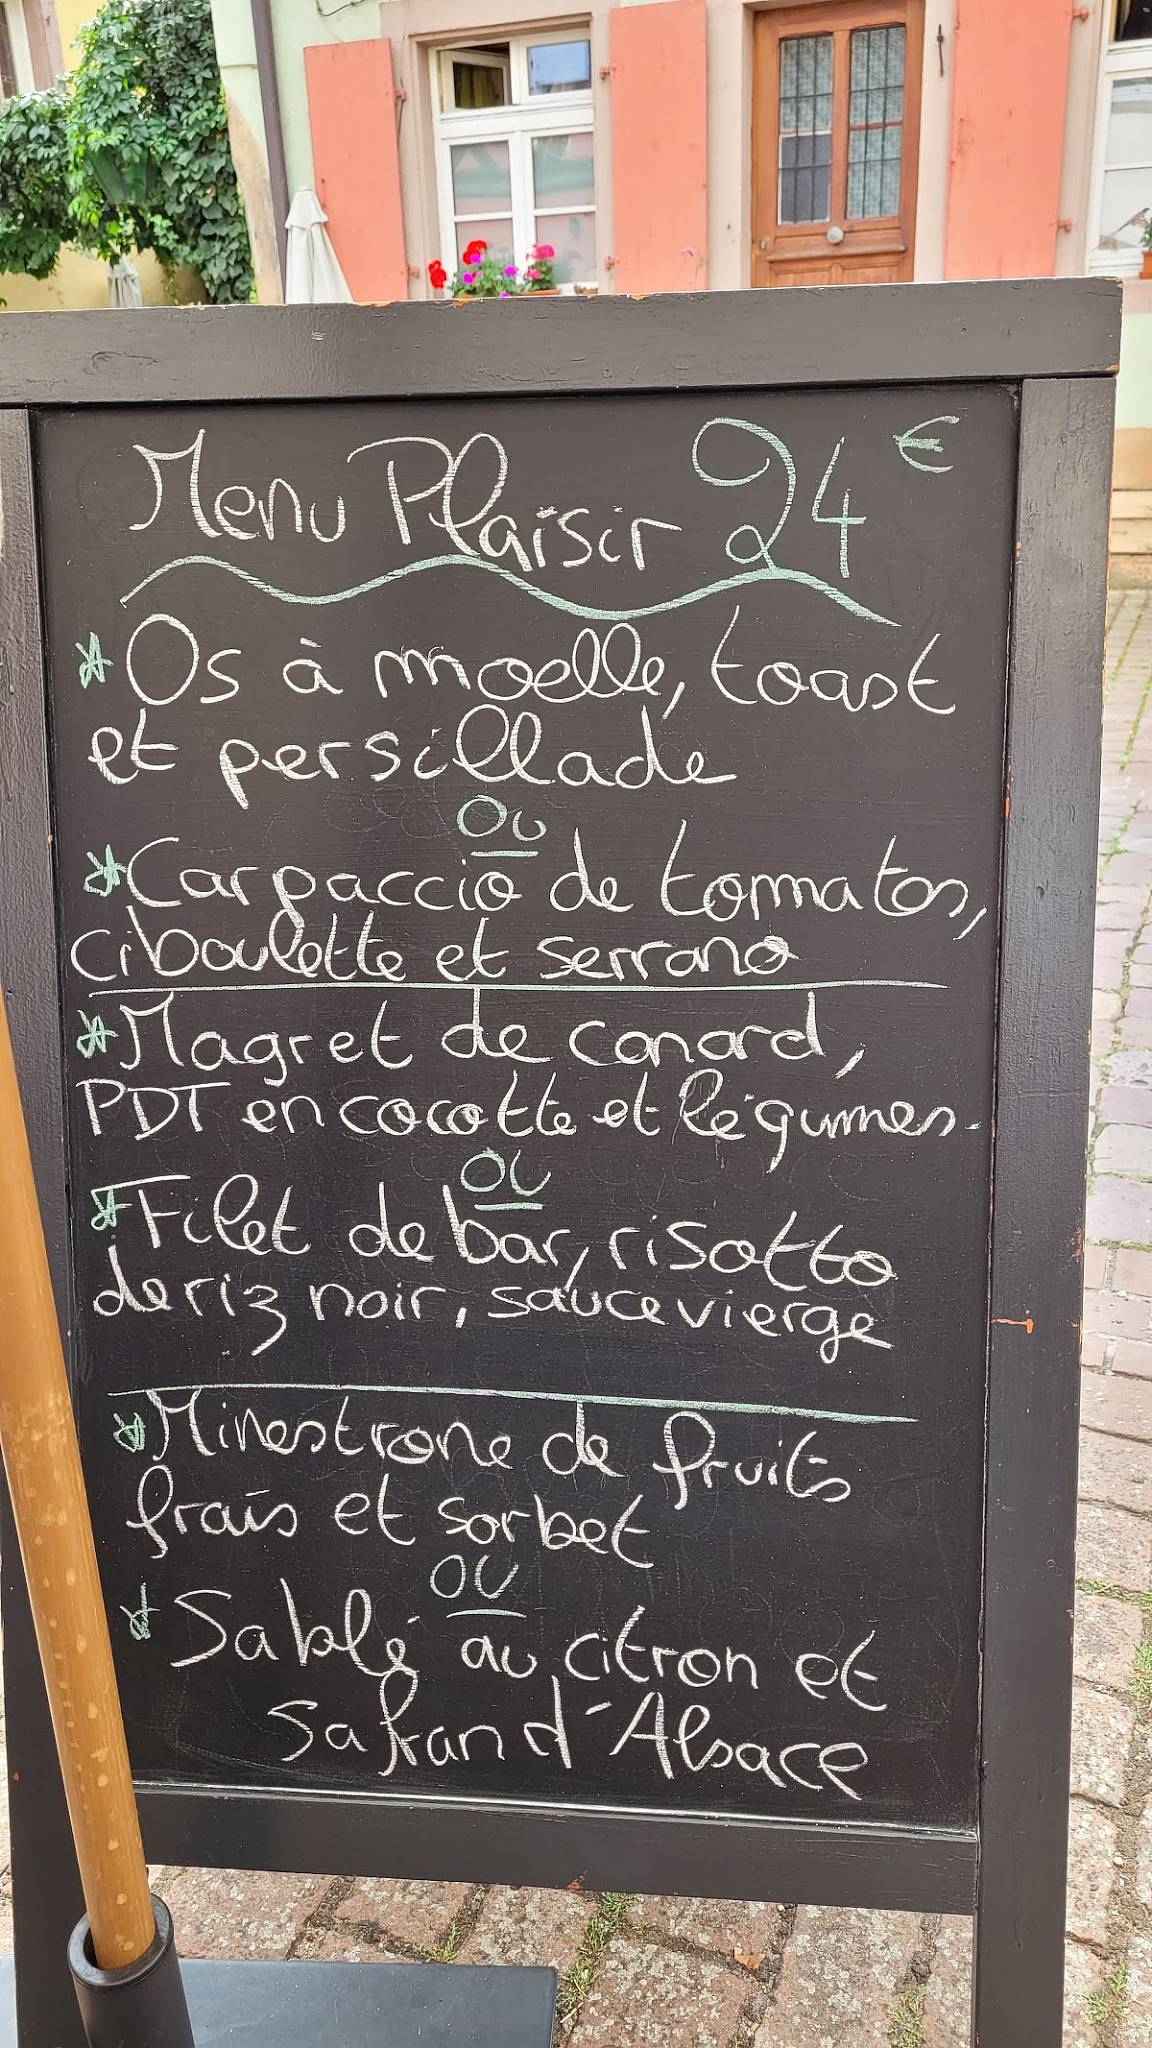 Menu Plaisir 24 €
Os à moelle, toast
et persillade
ou
Carpaccio de tomates,
ciboulette et serrano
Magret de canard,
PDT en cocotte et légumes.
ou
Filet de bar, risotto
de riz noir, sauce vierge
Minestrone de fruits
frais et sorbet
ou
Sablé au citron et
safran d'Alsace